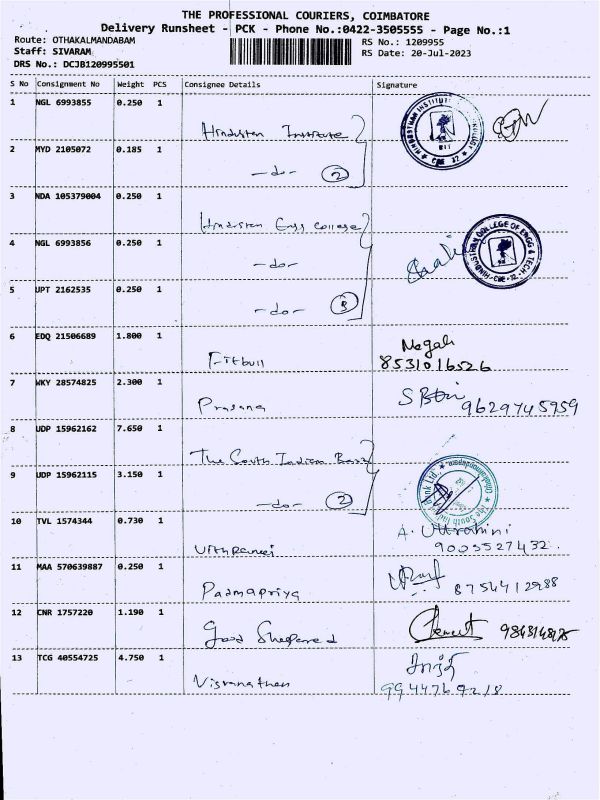 THE PROFESSIONAL COURIERS, COIMBATORE
Delivery Runsheet - PCK - Phone No.:0422-3505555 - Page No.:1
Route: OTHAKALMANDABAM
RS No.: 1209955
Staff: SIVARAM
RS Date: 20-Jul-2023
DRS No.: DCJB120995501
S No Consignment No Weight PCS Consignee Details Signature
1 NGL 6993855 0.250 1
Hindustan Institute
2 MYD 2105072 0.185 1
-do- 2
3 NDA 105379004 0.250 1
Hindustan Engg College
4 NGL 6993856 0.250 1
-do-
5 UPT 2162535 0.250 1
-do- 3
6 EDQ 21506689 1.800 1
Fitbull
8531016526
7 WKY 28574825 2.300 1
Prasana
9629745959
8 UDP 15962162 7.650 1
The South Indian Bank
9 UDP 15962115 3.150 1
-do- 2
10 TVL 1574344 0.730 1
A. Uttrahini
9005527432.
11 MAA 570639887 0.250 1
Padmapriya
8754412988
12 CNR 1757220 1.190 1
Good Sheperred
13 TCG 40554725 4.750 1
Visvanathan
9944769218